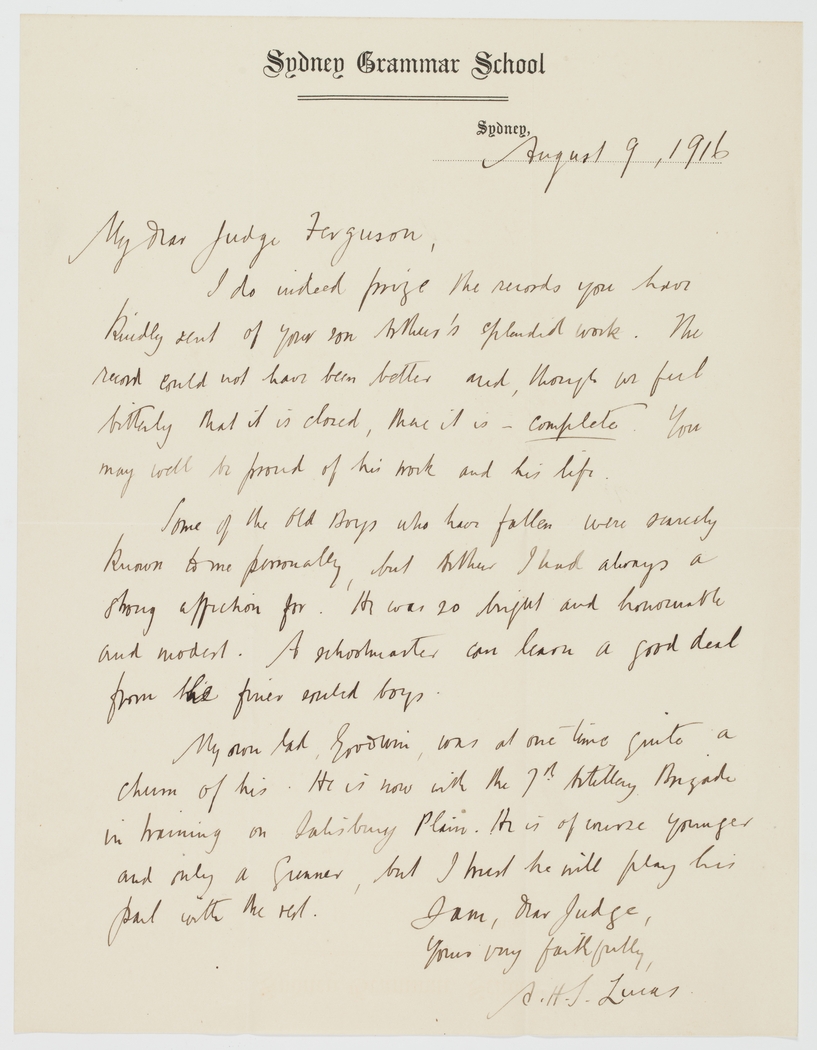 Sydney Grammar School
Sydney,
August 9, 1916
My dear Judge Ferguson,
I do indeed prize the records you have
kindly sent of your son Arthur's splendid work. The
record could not have been better and, though we feel
bitterly that it is closed, there it is – complete. You
may well be proud of his work and his life.
Some of the Old Boys who have fallen were scarcely
known to me personally, but Arthur I had always a
strong affection for. He was so bright and honourable
and modest. A schoolmaster can learn a good deal
from the finer souled boys.
My own lad, Goodwin, was at one time quite a
chum of his. He is now with the 7th Artillery Brigade
in training on Salisbury Plain. He is of course younger
and only a Gunner, but I trust he will play his
part with the rest.
I am, dear Judge,
Yours very faithfully,
A.H.S. Lucas.